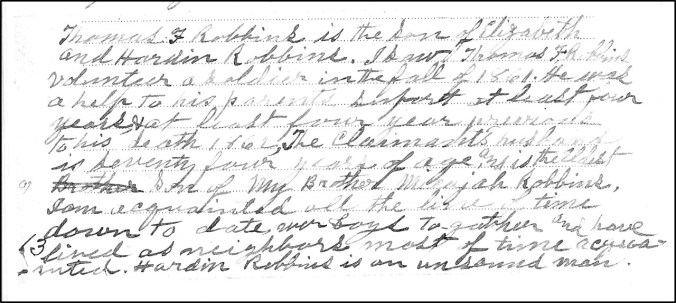 Thomas F Robbins is the son of Elizabeth
and Hardin Robbins. I saw Thomas F Robbins
volunteer a soldier in the fall of 1861. He was
a help to his parents suport at least four
years & at least four year previous
to his death 1862, The Claimants husband
is seventy four years of age and is the oldest
Brother Son of My Brother Micajah Robbins.
I am acquainted all the line of time
down to date, wer boys to gather and have
lived as neighbors most of time
Hardin Robbins is an unsound man.